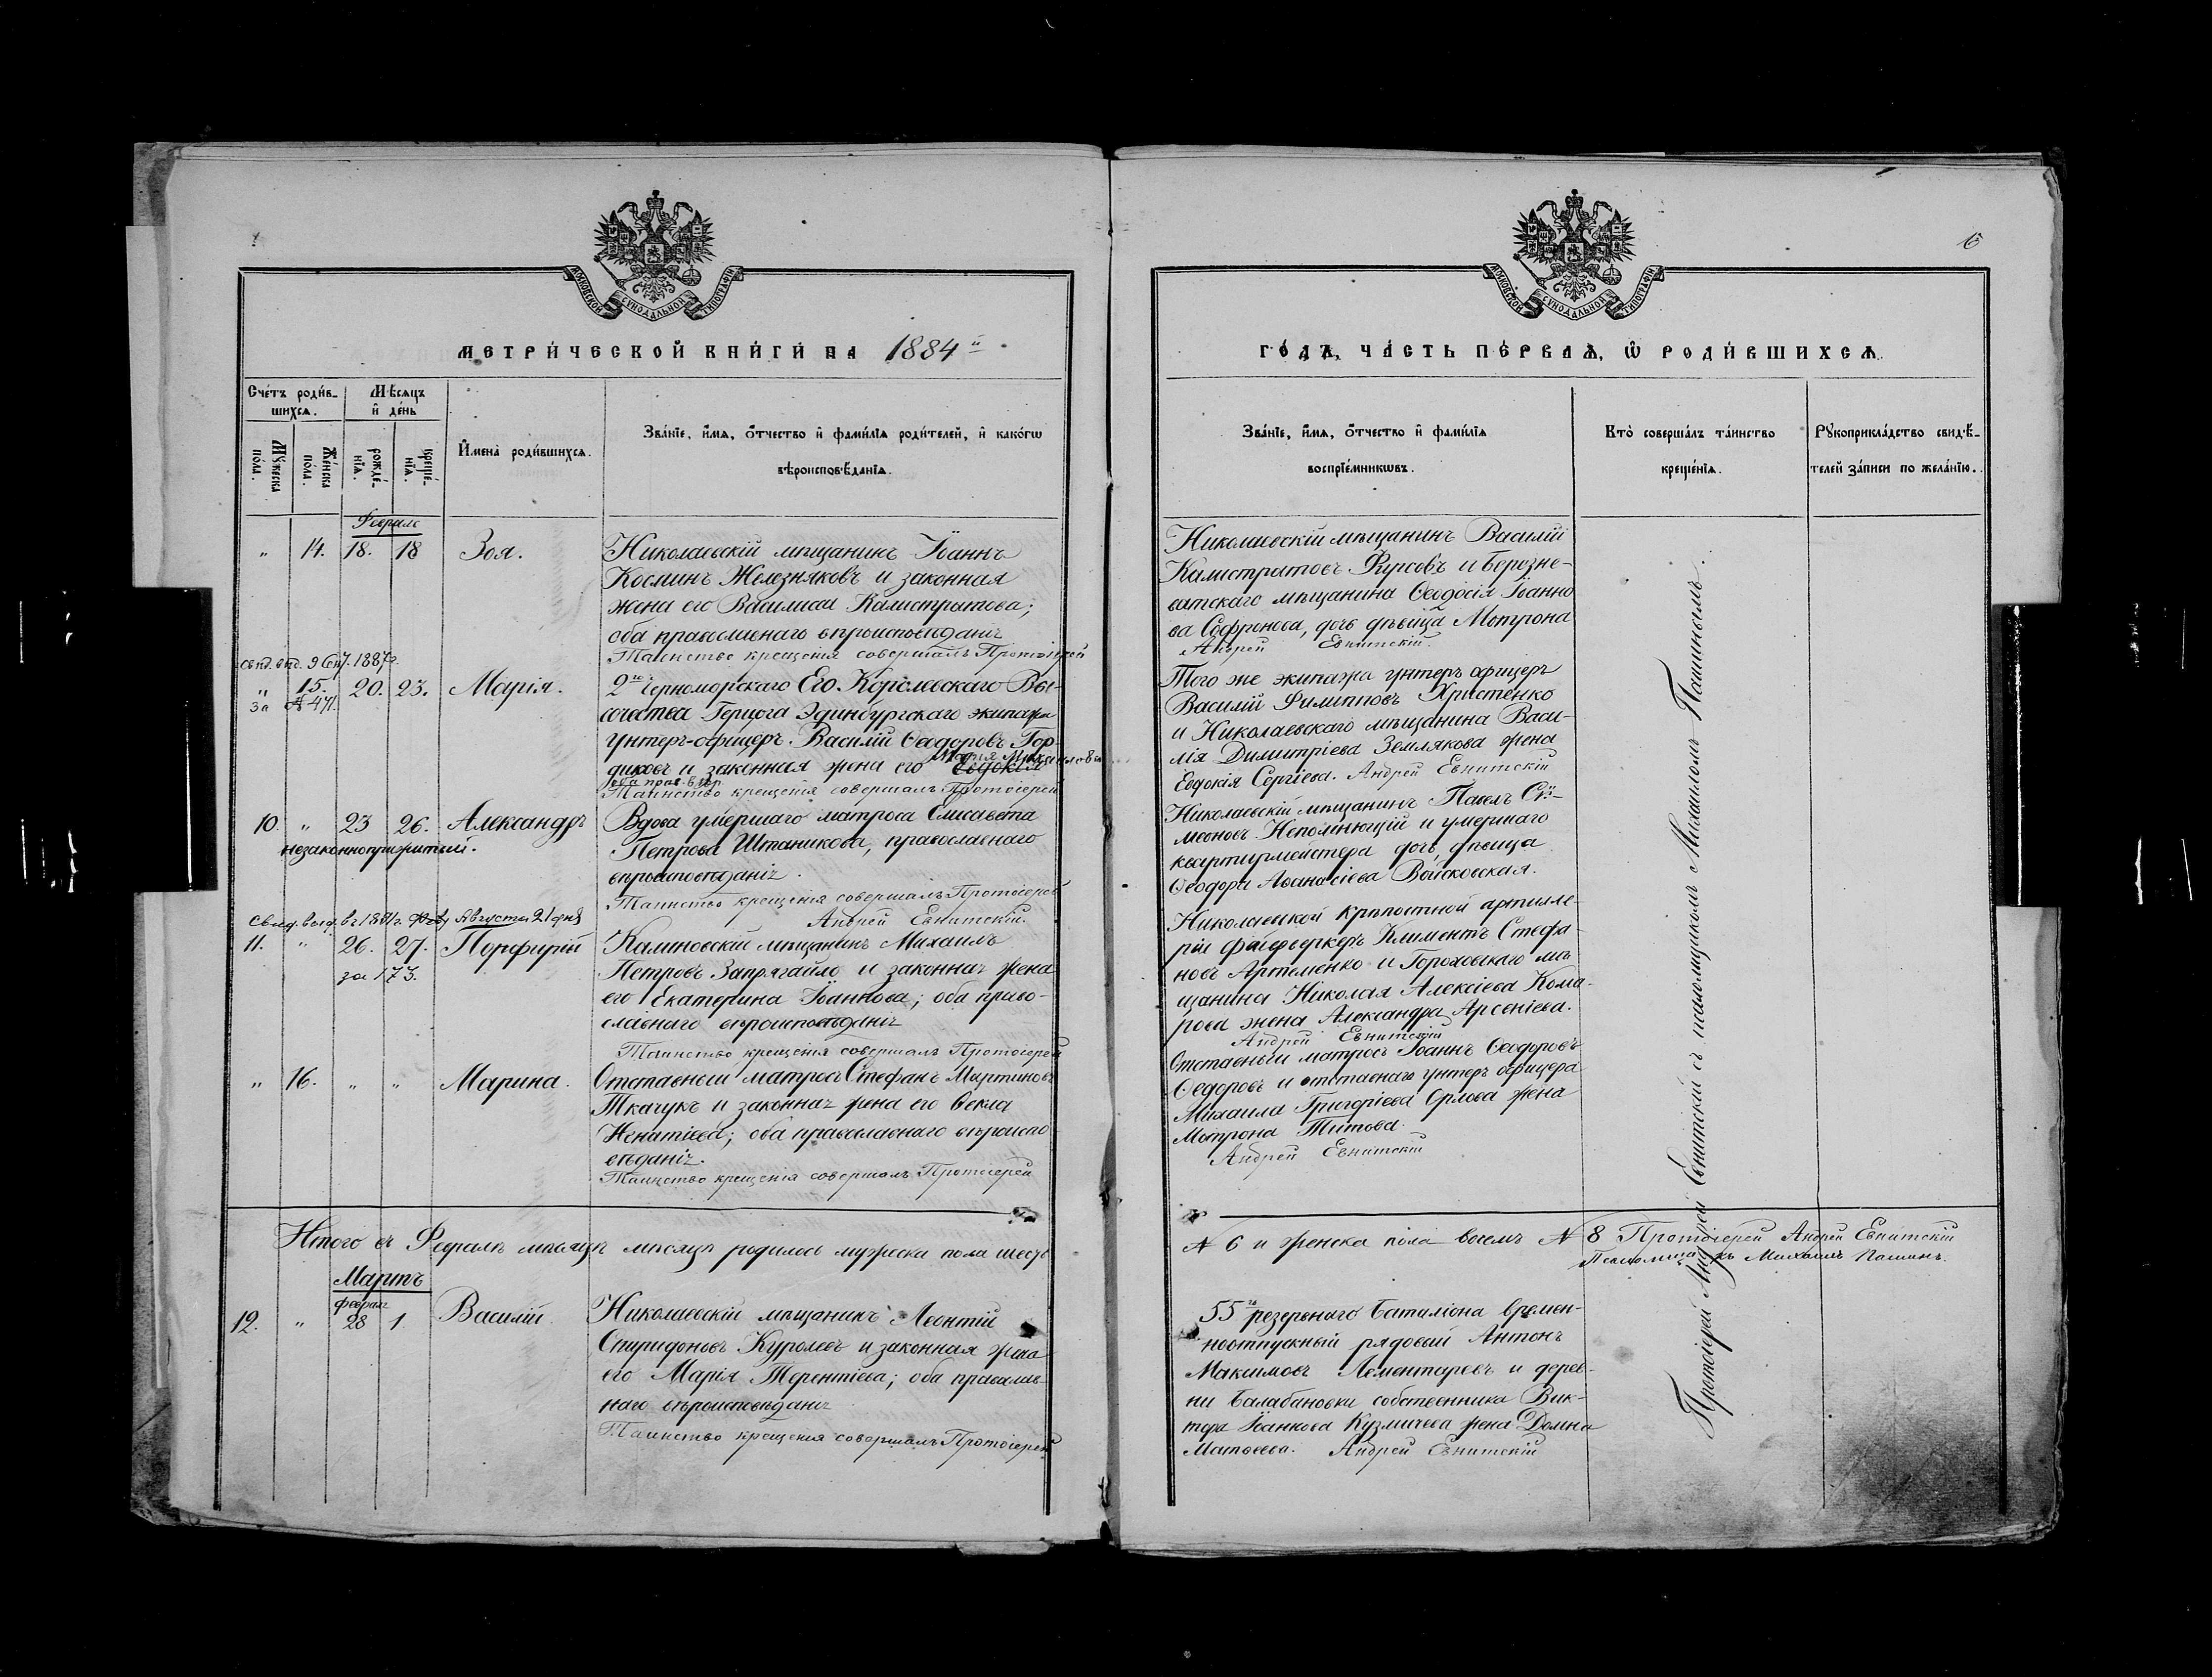 МОСКОВСКОЙ СѴНОДАЛЬНОЙ ТИПОГРАФІИ
МЕТРИ́ЧЕСКОЙ КНИ́ГИ НА 1884й
Сче́тъ роди́в-
шихсѧ.
Мѣ́сѧцъ
и҆ де́нь
Мꙋ́жеска
по́ла.
Же́нска
по́ла.
рожде́-
нїѧ.
креще́-
нїѧ.
И҆мена̀ роди́вшихсѧ.
Зва́нїе, и҆́мѧ, ѻ҆́тчество и҆ фами́лїѧ роди́телей, и҆ како́гѡ
вѣроисповѣ́данїѧ.
Февраль
" 14. 18. 18 Зоя.
Николаевскій мѣщанинъ Іоаннъ
Косминъ Железняковъ и законная
жена его Василиса Калистратова;
оба православнаго вѣроисповѣданія
Таинство крещенія совершалъ Протоіерей
" 15. 20. 23. Марія.
За № 471.
2го Черноморскаго Его Королевскаго Вы-
сочества Герцога Эдинбургскаго экипажа
унтеръ-офицеръ Василій Ѳеодоровъ Гор-
диковъ и законная жена его Евдокія
Таинство крещенія совершалъ Протоіерей
10. " 23 26. Александръ
незаконноприжитый.
Вдова умершаго матроса Елисавета
Петрова Штаникова, православнаго
вѣроисповѣданія.
Таинство крещенія совершалъ Протоіерей
Андрей Евнитскій.
Августа 21 дня
11. " 26. 27. Порфирій
за 173.
Калиновскій мѣщанинъ Михаилъ
Петровъ Запрягайло и законная жена
его Екатерина Іоаннова; оба право-
славнаго вѣроисповѣданія
Таинство крещенія совершалъ Протоіерей
" 16. " " Марина.
Отставный матросъ Стефанъ Мартиновъ
Ткачукъ и законная жена его Ѳекла
Игнатіева; оба православнаго вѣроиспо
вѣданія.
Таинство крещенія совершалъ Протоіерей
Итого въ Февралѣ мѣсяцѣ мѣсяцѣ родилось мужеска пола шесть
Мартъ
Феврал.
12. " 28 1. Василій
Николаевскій мѣщанинъ Леонтій
Спиридоновъ Куролевъ и законная жена
его Марія Терентіева; оба православ-
наго вѣроисповѣданія
Таинство крещенія совершалъ Протоіерей
МОСКОВСКОЙ СѴНОДАЛЬНОЙ ТИПОГРАФІИ
ГО́ДЪ, ЧА́СТЬ ПЕ́РВАѦ, Ѡ҆ РОДИ́ВШИХСѦ.
Зва́нїе, и҆́мѧ, ѻ҆́тчество и҆ фами́лїѧ
воспрїе́мникѡвъ.
Кто̀ соверша́лъ та́инство
креще́нїѧ.
Рꙋкоприкла́дство свидѣ́-
телей за́писи по жела́нїю.
Николаевскій мѣщанинъ Василій
Калистратовъ Фурсовъ и Борозне-
ватскаго мѣщанина Ѳеодосія Іоанно
ва Софронова, дочь дѣвица Мотрона
Андрей Евнитскій.
Того же экипажа унтеръ офицеръ
Василій Филипповъ Христенко
и Николаевскаго мѣщанина Васи-
лія Димитріева Землякова жена
Евдокія Сергіева. Андрей Евнитскій
Николаевскій мѣщанинъ Павелъ Сѵ-
меоновъ Неполнющій и умершаго
квартирмейстера дочь, дѣвица
Ѳеодора Аѳанасіева Войсковская.
Николаевской крѣпостной артилле-
ріи фейерверкеръ Климентъ Стефа-
новъ Артеменко и Гороховскаго мѣ
щанина Николая Алексіева Кома-
рова жена Александра Арсеніева.
Андрей Евнитскій
Отставный матросъ Іоаннъ Ѳеодоровъ
Ѳедоровъ и отставнаго унтеръ офицера
Михаила Григоріева Орлова жена
Мотрона Титова.
Андрей Евнитскій
№ 6 и женска пола восемь № 8 Протоіерей Андрей Евнитскій
Псаломщикъ Михаилъ Пашинъ.
55го резервнаго баталіона времен-
ноотпускный рядовый Антонъ
Максимовъ Лементаревъ и дерев-
ни Балабановки собственника Вик-
тора Іоаннова Кузмичева жена Домна
Матѳеева. Андрей Евнитскій
Протоіерей Андрей Евнитскій съ псаломщикомъ Михаиломъ Пашинымъ.